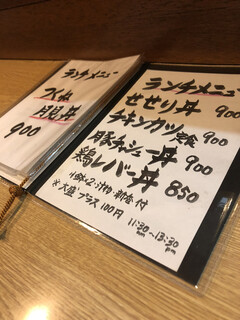 ランチメニュー
つくね
月見丼
900
ランチメニュー
せせり丼 900
チキンカツ定食 900
豚チャーシュー丼 900
鶏レバー丼 850
小鉢×2・汁物・新香付
※大盛プラス100円
11:30〜13:30